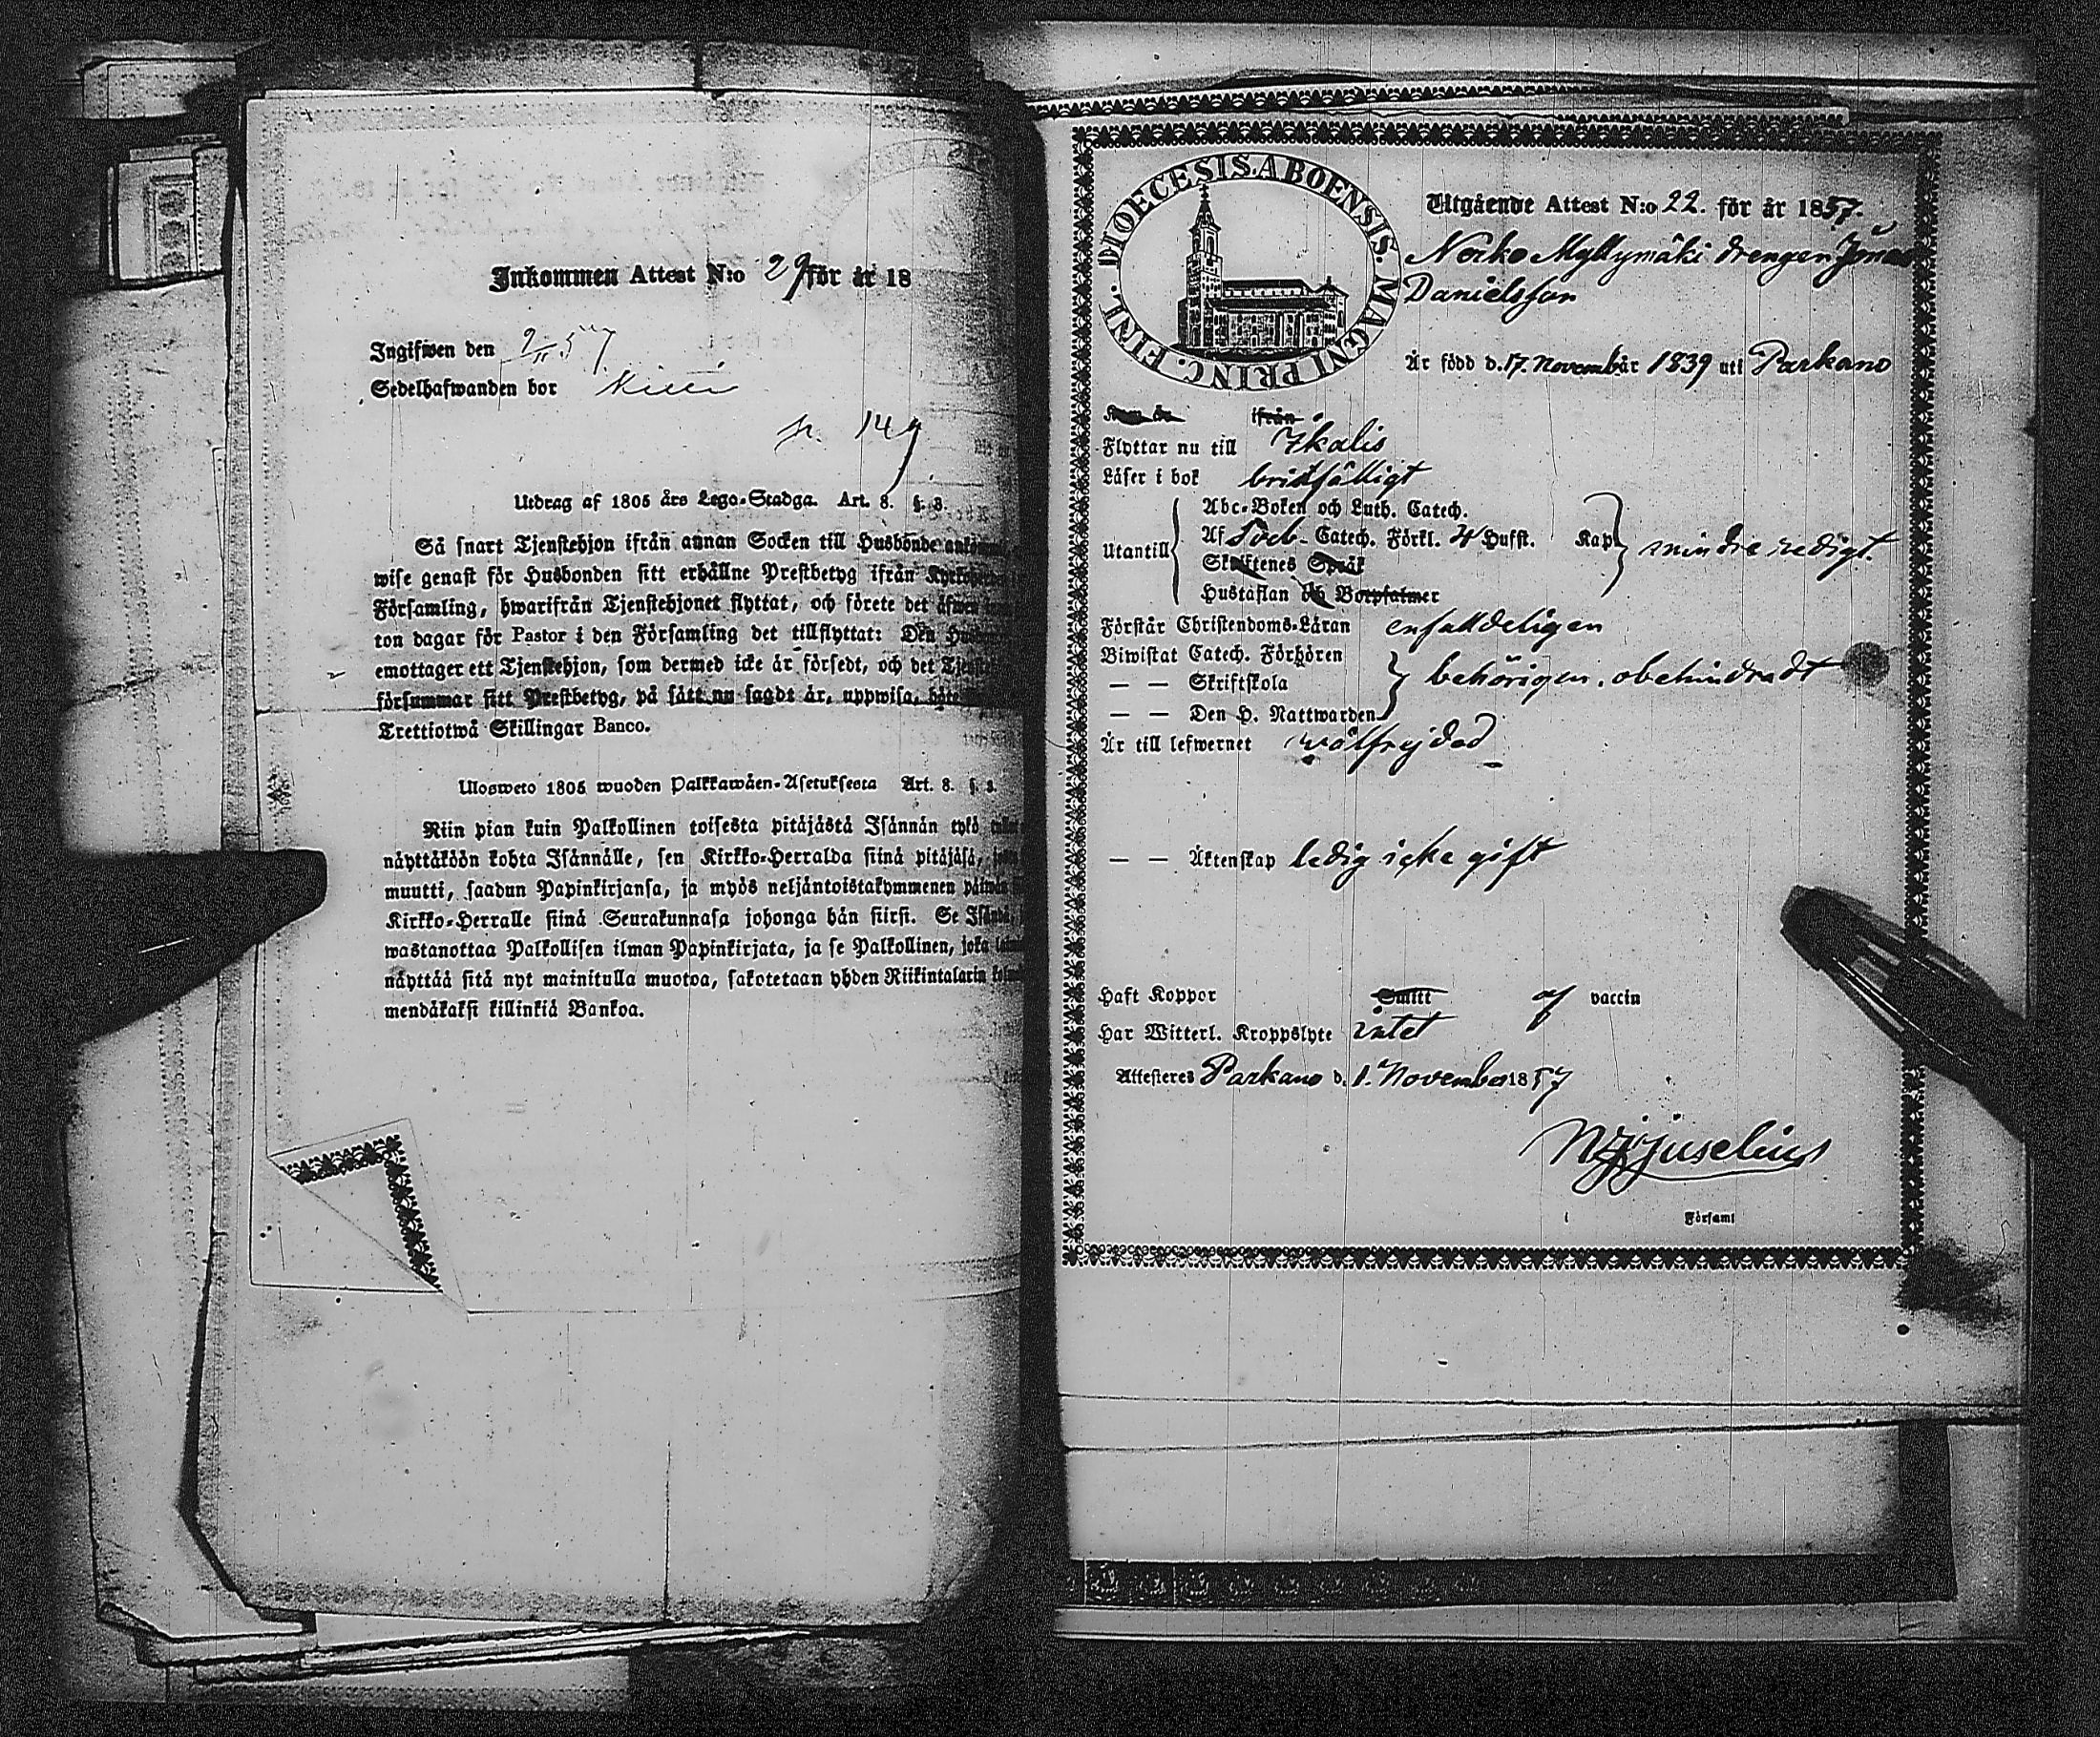 Inkommen Attest N:o 29 för år 18
Ingifwen den 9/11 57
Sedelhafwanden bor
p. 149
Utdrag af 1805 års Lego-Stadga. Art. 8. §. 3.
Så snart Tjenstehjon ifrån annan Socken till Husbonde
wise genast för Husbonden sitt erhållne Prestbetyg ifrån
Församling, hwarifrån Tjenstehjonet flyttat, och förete det äfwen
ton dagar för Pastor i den Församling det tillflyttat: Den
emottager ett Tjenstehjon, som dermed icke är försedt, och det
försummar sitt Prestbetyg, på sätt nu sagdt är, uppwisa,
Trettiotwå Skillingar Banco.
Ulosweto 1805 wuoden Palkkawäen-Asetuksesta Art. 8. §. 3.
Niin pian kuin Palkollinen toisesta pitäjästä Isännän tykö
näyttäköön kohta Isännälle, sen Kirkko-Herralda siinä pitäjäsä,
muutti, saadun Papinkirjansa, ja myös neljäntoistakymmenen
Kirkko-Herralle siinä Seurakunnasa johonga hän siirsi. Se
wastanottaa Palkollisen ilman Papinkirjata, ja se Palkollinen, joka
näyttää sitä nyt mainitulla muotoa, sakotetaan yhden Riikintalarin
mendäkaksi killinkiä Bankoa.
DIOECESIS. ABOENSIS. MAGNI PRINC. FINL.
Utgående Attest N:o 22. för år 1857.
Myllymäki drengen Jonas
Danielsson
Är född d. 17 November 1839 uti Parkano
ifrån
Flyttar nu till Ikalis
Läser i bok bristfälligt
Abc-Boken och Luth. Catech.
Utantill Af Sveb- Catech. Förkl. 4 Hufst. Kap mindre redigt
Skriftenes Språk
Hustaflan och Botpsalmer
Förstår Christendoms-Läran enfalldeligen
Biwistat Catech. Förhören
— — Skriftskola behörigen, obehindradt
— — Den H. Nattwarden
Är till lefwernet wälfrejdad
— — Äktenskap ledig icke gift
Haft Koppor Smitt af vaccin
Har Witterl. Kroppslyte intet
Attesteres Parkano d. 1. November 1857
Juselius
i Församl